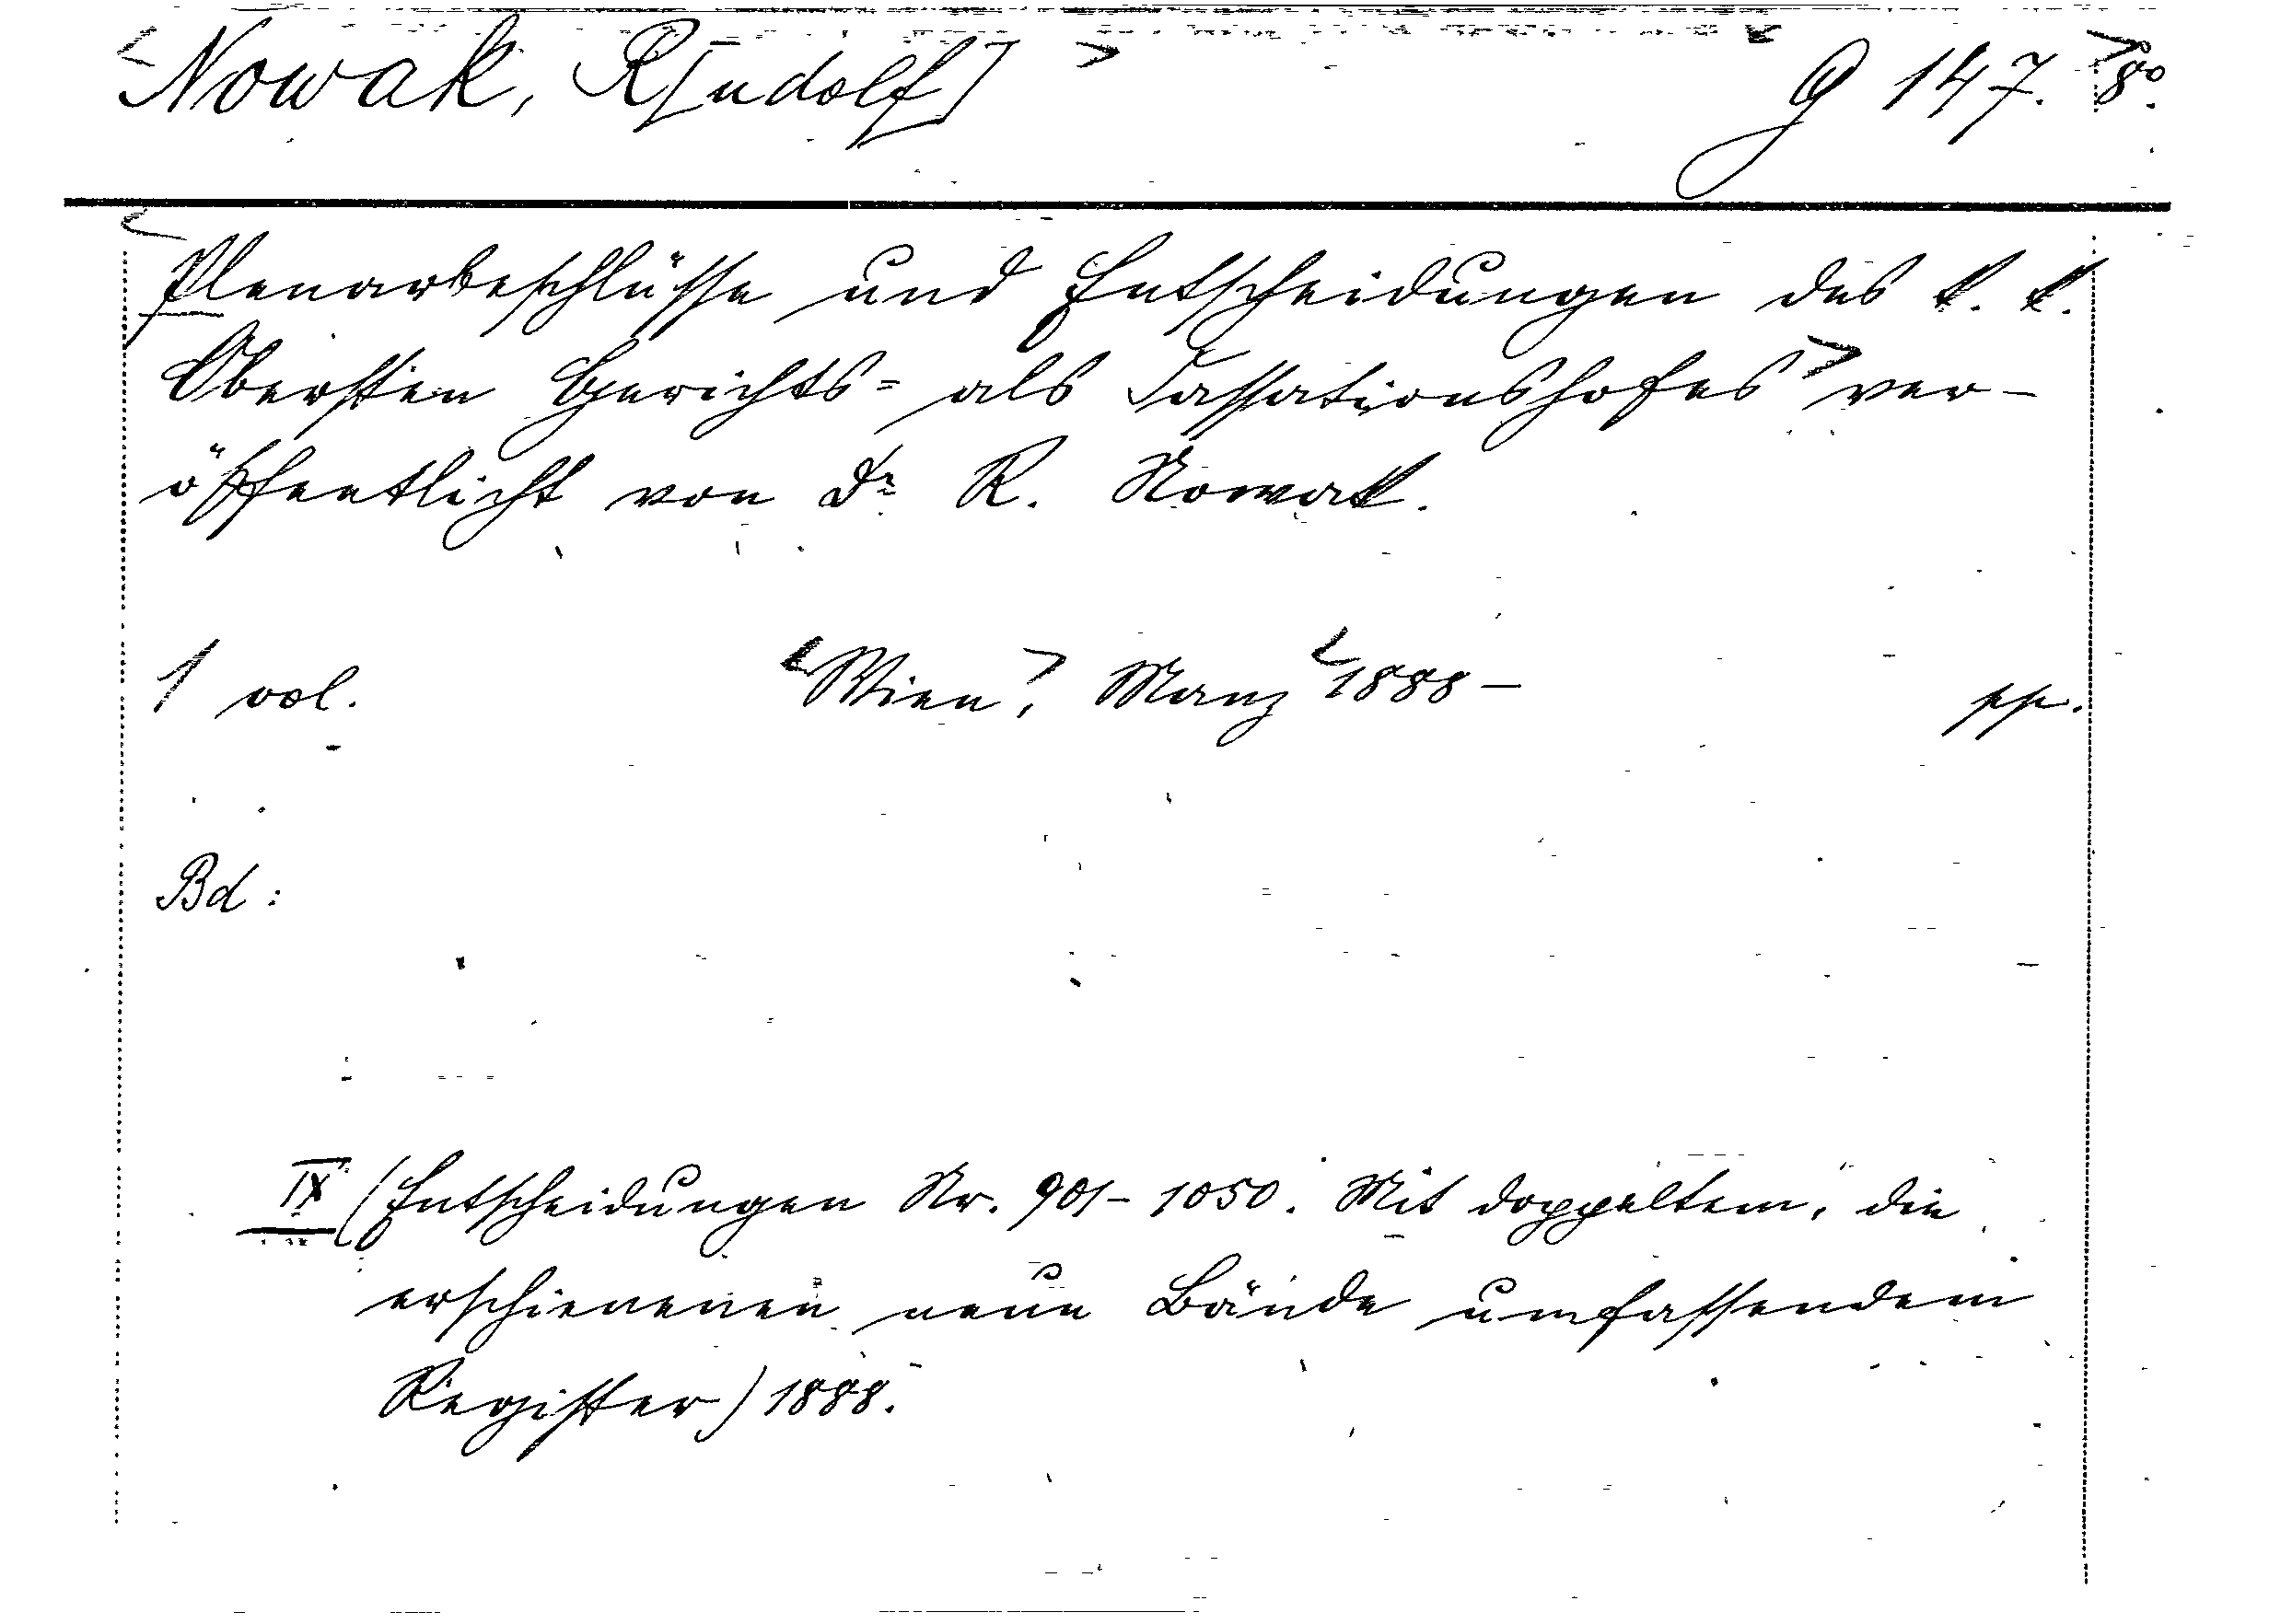 <Nowak, R[udolf]> g 147. 8°.>
<Plenarbeschlüsse und Entscheidungen des k. k.
Obersten Gerichts- als Cassationshofes> ver-
öffentlicht von Dr R. Nowak.
1 vol. <Wien>, Manz <1888— pp.
Bd:
IX (Entscheidungen Nr. 901-1050. Mit doppeltem, die
erschienenen neun Bände umfassendem
Register) 1888.